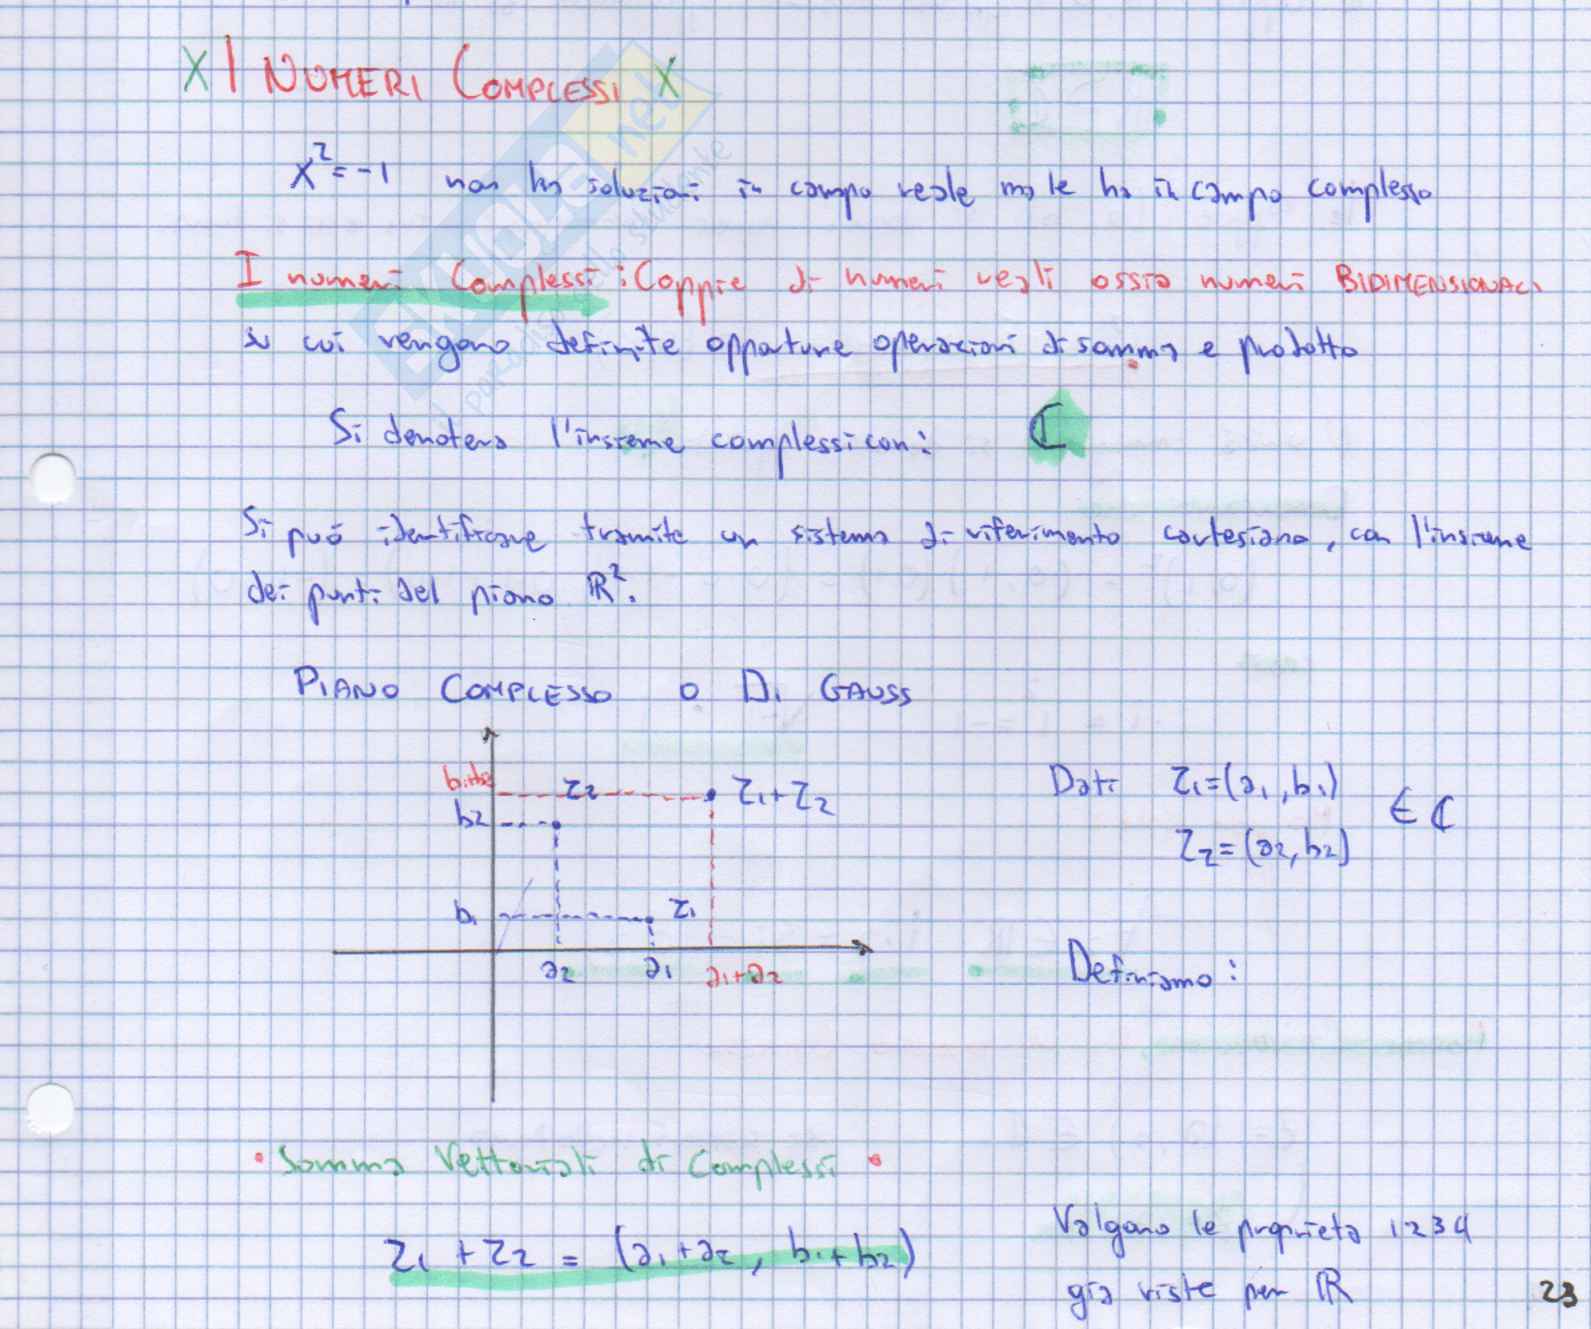 X I NUMERI COMPLESSI X
x² = -1 non ha soluzioni in campo reale ma le ha in campo complesso
I numeri Complessi : Coppie di numeri reali ossia numeri BIDIMENSIONALI
su cui vengono definite opportune operazioni di somma e prodotto
Si denotera l'insieme complessi con: ℂ
Si può identificare tramite un sistema di riferimento cartesiano, con l'insieme
dei punti del piano ℝ².
PIANO COMPLESSO O DI GAUSS
b1+b2 z2 z1+z2
b2
b1 z1
a2 a1 a1+a2
Dati z1=(a1,b1)
z2=(a2,b2) ∈ ℂ
Definiamo:
• Somma Vettoriali di Complessi •
z1 + z2 = (a1+a2, b1+b2)
Valgono le proprietà 1 2 3 4
già viste per ℝ
23